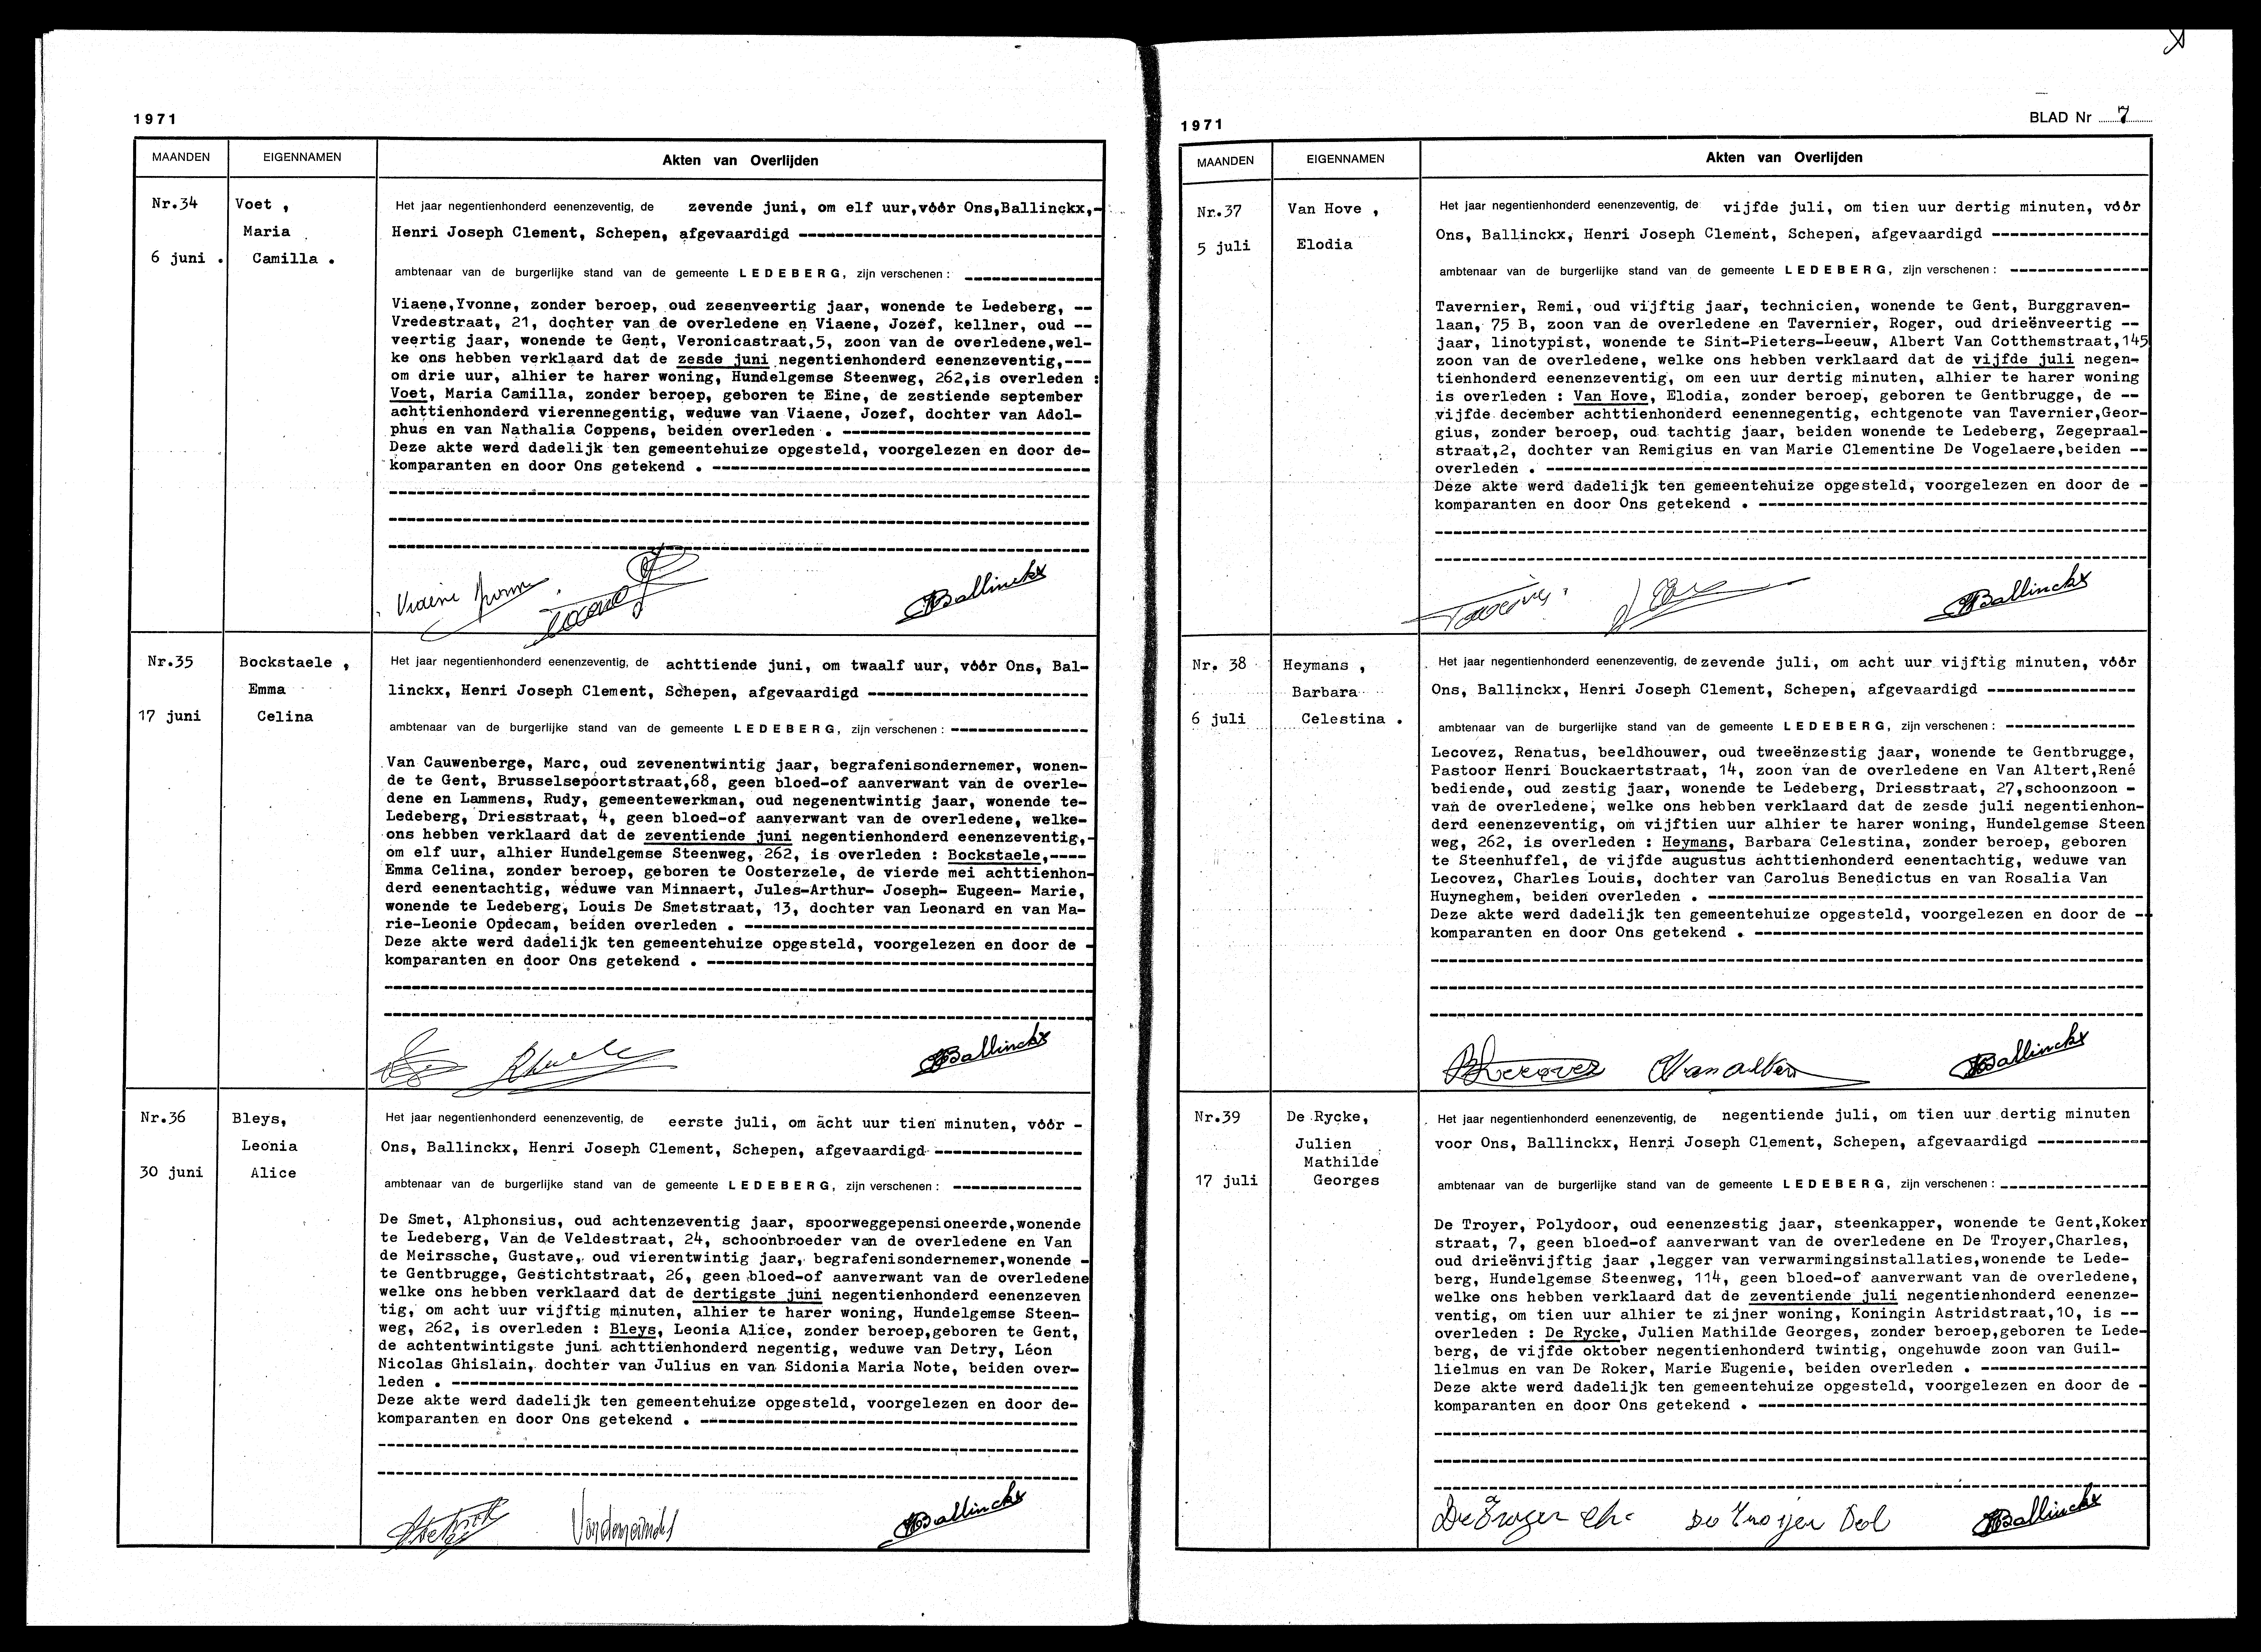 1971
MAANDEN
EIGENNAMEN
Akten van Overlijden
Nr.34
6 juni .
Voet ,
Maria
Camilla .
Het jaar negentienhonderd eenenzeventig, de zevende juni, om elf uur,vóór Ons,Ballinckx,-
Henri Joseph Clement, Schepen, afgevaardigd
ambtenaar van de burgerlijke stand van de gemeente LEDEBERG, zijn verschenen :
Viaene,Yvonne, zonder beroep, oud zesenveertig jaar, wonende te Ledeberg, --
Vredestraat, 21, dochter van de overledene en Viaene, Jozef, kellner, oud --
veertig jaar, wonende te Gent, Veronicastraat,5, zoon van de overledene,wel-
ke ons hebben verklaard dat de zesde juni negentienhonderd eenenzeventig,---
om drie uur, alhier te harer woning, Hundelgemse Steenweg, 262,is overleden :
Voet, Maria Camilla, zonder beroep, geboren te Eine, de zestiende september
achttienhonderd vierennegentig, weduwe van Viaene, Jozef, dochter van Adol-
phus en van Nathalia Coppens, beiden overleden .
Deze akte werd dadelijk ten gemeentehuize opgesteld, voorgelezen en door de-
komparanten en door Ons getekend .
Ballinckx
Nr.35
17 juni
Bockstaele ,
Emma
Celina
Het jaar negentienhonderd eenenzeventig, de achttiende juni, om twaalf uur, vóór Ons, Bal-
linckx, Henri Joseph Clement, Schepen, afgevaardigd
ambtenaar van de burgerlijke stand van de gemeente LEDEBERG, zijn verschenen :
Van Cauwenberge, Marc, oud zevenentwintig jaar, begrafenisondernemer, wonen-
de te Gent, Brusselsepoortstraat,68, geen bloed-of aanverwant van de overle-
dene en Lammens, Rudy, gemeentewerkman, oud negenentwintig jaar, wonende te-
Ledeberg, Driesstraat, 4, geen bloed-of aanverwant van de overledene, welke-
ons hebben verklaard dat de zeventiende juni negentienhonderd eenenzeventig,-
om elf uur, alhier Hundelgemse Steenweg, 262, is overleden : Bockstaele,----
Emma Celina, zonder beroep, geboren te Oosterzele, de vierde mei achttienhon-
derd eenentachtig, weduwe van Minnaert, Jules-Arthur- Joseph- Eugeen- Marie,
wonende te Ledeberg, Louis De Smetstraat, 13, dochter van Leonard en van Ma-
rie-Leonie Opdecam, beiden overleden .
Deze akte werd dadelijk ten gemeentehuize opgesteld, voorgelezen en door de -
komparanten en door Ons getekend .
Ballinckx
Nr.36
30 juni
Bleys,
Leonia
Alice
Het jaar negentienhonderd eenenzeventig, de eerste juli, om acht uur tien minuten, vóór -
Ons, Ballinckx, Henri Joseph Clement, Schepen, afgevaardigd
ambtenaar van de burgerlijke stand van de gemeente LEDEBERG, zijn verschenen :
De Smet, Alphonsius, oud achtenzeventig jaar, spoorweggepensioneerde,wonende
te Ledeberg, Van de Veldestraat, 24, schoonbroeder van de overledene en Van
de Meirssche, Gustave, oud vierentwintig jaar, begrafenisondernemer,wonende -
te Gentbrugge, Gestichtstraat, 26, geen bloed-of aanverwant van de overledene
welke ons hebben verklaard dat de dertigste juni negentienhonderd eenenzeven
tig, om acht uur vijftig minuten, alhier te harer woning, Hundelgemse Steen-
weg, 262, is overleden : Bleys, Leonia Alice, zonder beroep,geboren te Gent,
de achtentwintigste juni achttienhonderd negentig, weduwe van Detry, Léon
Nicolas Ghislain, dochter van Julius en van Sidonia Maria Note, beiden over-
leden .
Deze akte werd dadelijk ten gemeentehuize opgesteld, voorgelezen en door de-
komparanten en door Ons getekend .
Ballinckx
1971
BLAD Nr 7
MAANDEN
EIGENNAMEN
Akten van Overlijden
Nr.37
5 juli
Van Hove ,
Elodia
Het jaar negentienhonderd eenenzeventig, de vijfde juli, om tien uur dertig minuten, vóór
Ons, Ballinckx, Henri Joseph Clement, Schepen, afgevaardigd
ambtenaar van de burgerlijke stand van de gemeente LEDEBERG, zijn verschenen :
Tavernier, Remi, oud vijftig jaar, technicien, wonende te Gent, Burggraven-
laan, 75 B, zoon van de overledene en Tavernier, Roger, oud drieënveertig --
jaar, linotypist, wonende te Sint-Pieters-Leeuw, Albert Van Cotthemstraat,145
zoon van de overledene, welke ons hebben verklaard dat de vijfde juli negen-
tienhonderd eenenzeventig, om een uur dertig minuten, alhier te harer woning
is overleden : Van Hove, Elodia, zonder beroep, geboren te Gentbrugge, de --
vijfde december achttienhonderd eenennegentig, echtgenote van Tavernier,Geor-
gius, zonder beroep, oud tachtig jaar, beiden wonende te Ledeberg, Zegepraal-
straat,2, dochter van Remigius en van Marie Clementine De Vogelaere,beiden --
overleden .
Deze akte werd dadelijk ten gemeentehuize opgesteld, voorgelezen en door de -
komparanten en door Ons getekend .
Ballinckx
Nr. 38
6 juli
Heymans ,
Barbara
Celestina .
Het jaar negentienhonderd eenenzeventig, de zevende juli, om acht uur vijftig minuten, vóór
Ons, Ballinckx, Henri Joseph Clement, Schepen, afgevaardigd
ambtenaar van de burgerlijke stand van de gemeente LEDEBERG, zijn verschenen :
Lecovez, Renatus, beeldhouwer, oud tweeënzestig jaar, wonende te Gentbrugge,
Pastoor Henri Bouckaertstraat, 14, zoon van de overledene en Van Altert,René
bediende, oud zestig jaar, wonende te Ledeberg, Driesstraat, 27,schoonzoon -
van de overledene, welke ons hebben verklaard dat de zesde juli negentienhon-
derd eenenzeventig, om vijftien uur alhier te harer woning, Hundelgemse Steen
weg, 262, is overleden : Heymans, Barbara Celestina, zonder beroep, geboren
te Steenhuffel, de vijfde augustus achttienhonderd eenentachtig, weduwe van
Lecovez, Charles Louis, dochter van Carolus Benedictus en van Rosalia Van
Huyneghem, beiden overleden .
Deze akte werd dadelijk ten gemeentehuize opgesteld, voorgelezen en door de --
komparanten en door Ons getekend .
Ballinckx
Nr.39
17 juli
De Rycke,
Julien
Mathilde
Georges
Het jaar negentienhonderd eenenzeventig, de negentiende juli, om tien uur dertig minuten
voor Ons, Ballinckx, Henri Joseph Clement, Schepen, afgevaardigd
ambtenaar van de burgerlijke stand van de gemeente LEDEBERG, zijn verschenen :
De Troyer, Polydoor, oud eenenzestig jaar, steenkapper, wonende te Gent,Koker
straat, 7, geen bloed-of aanverwant van de overledene en De Troyer,Charles,
oud drieënvijftig jaar ,legger van verwarmingsinstallaties,wonende te Lede-
berg, Hundelgemse Steenweg, 114, geen bloed-of aanverwant van de overledene,
welke ons hebben verklaard dat de zeventiende juli negentienhonderd eenenze-
ventig, om tien uur alhier te zijner woning, Koningin Astridstraat,10, is --
overleden : De Rycke, Julien Mathilde Georges, zonder beroep,geboren te Lede-
berg, de vijfde oktober negentienhonderd twintig, ongehuwde zoon van Guil-
lielmus en van De Roker, Marie Eugenie, beiden overleden .
Deze akte werd dadelijk ten gemeentehuize opgesteld, voorgelezen en door de -
komparanten en door Ons getekend .
De Troyer Ch. De Troijer Pol Ballinckx